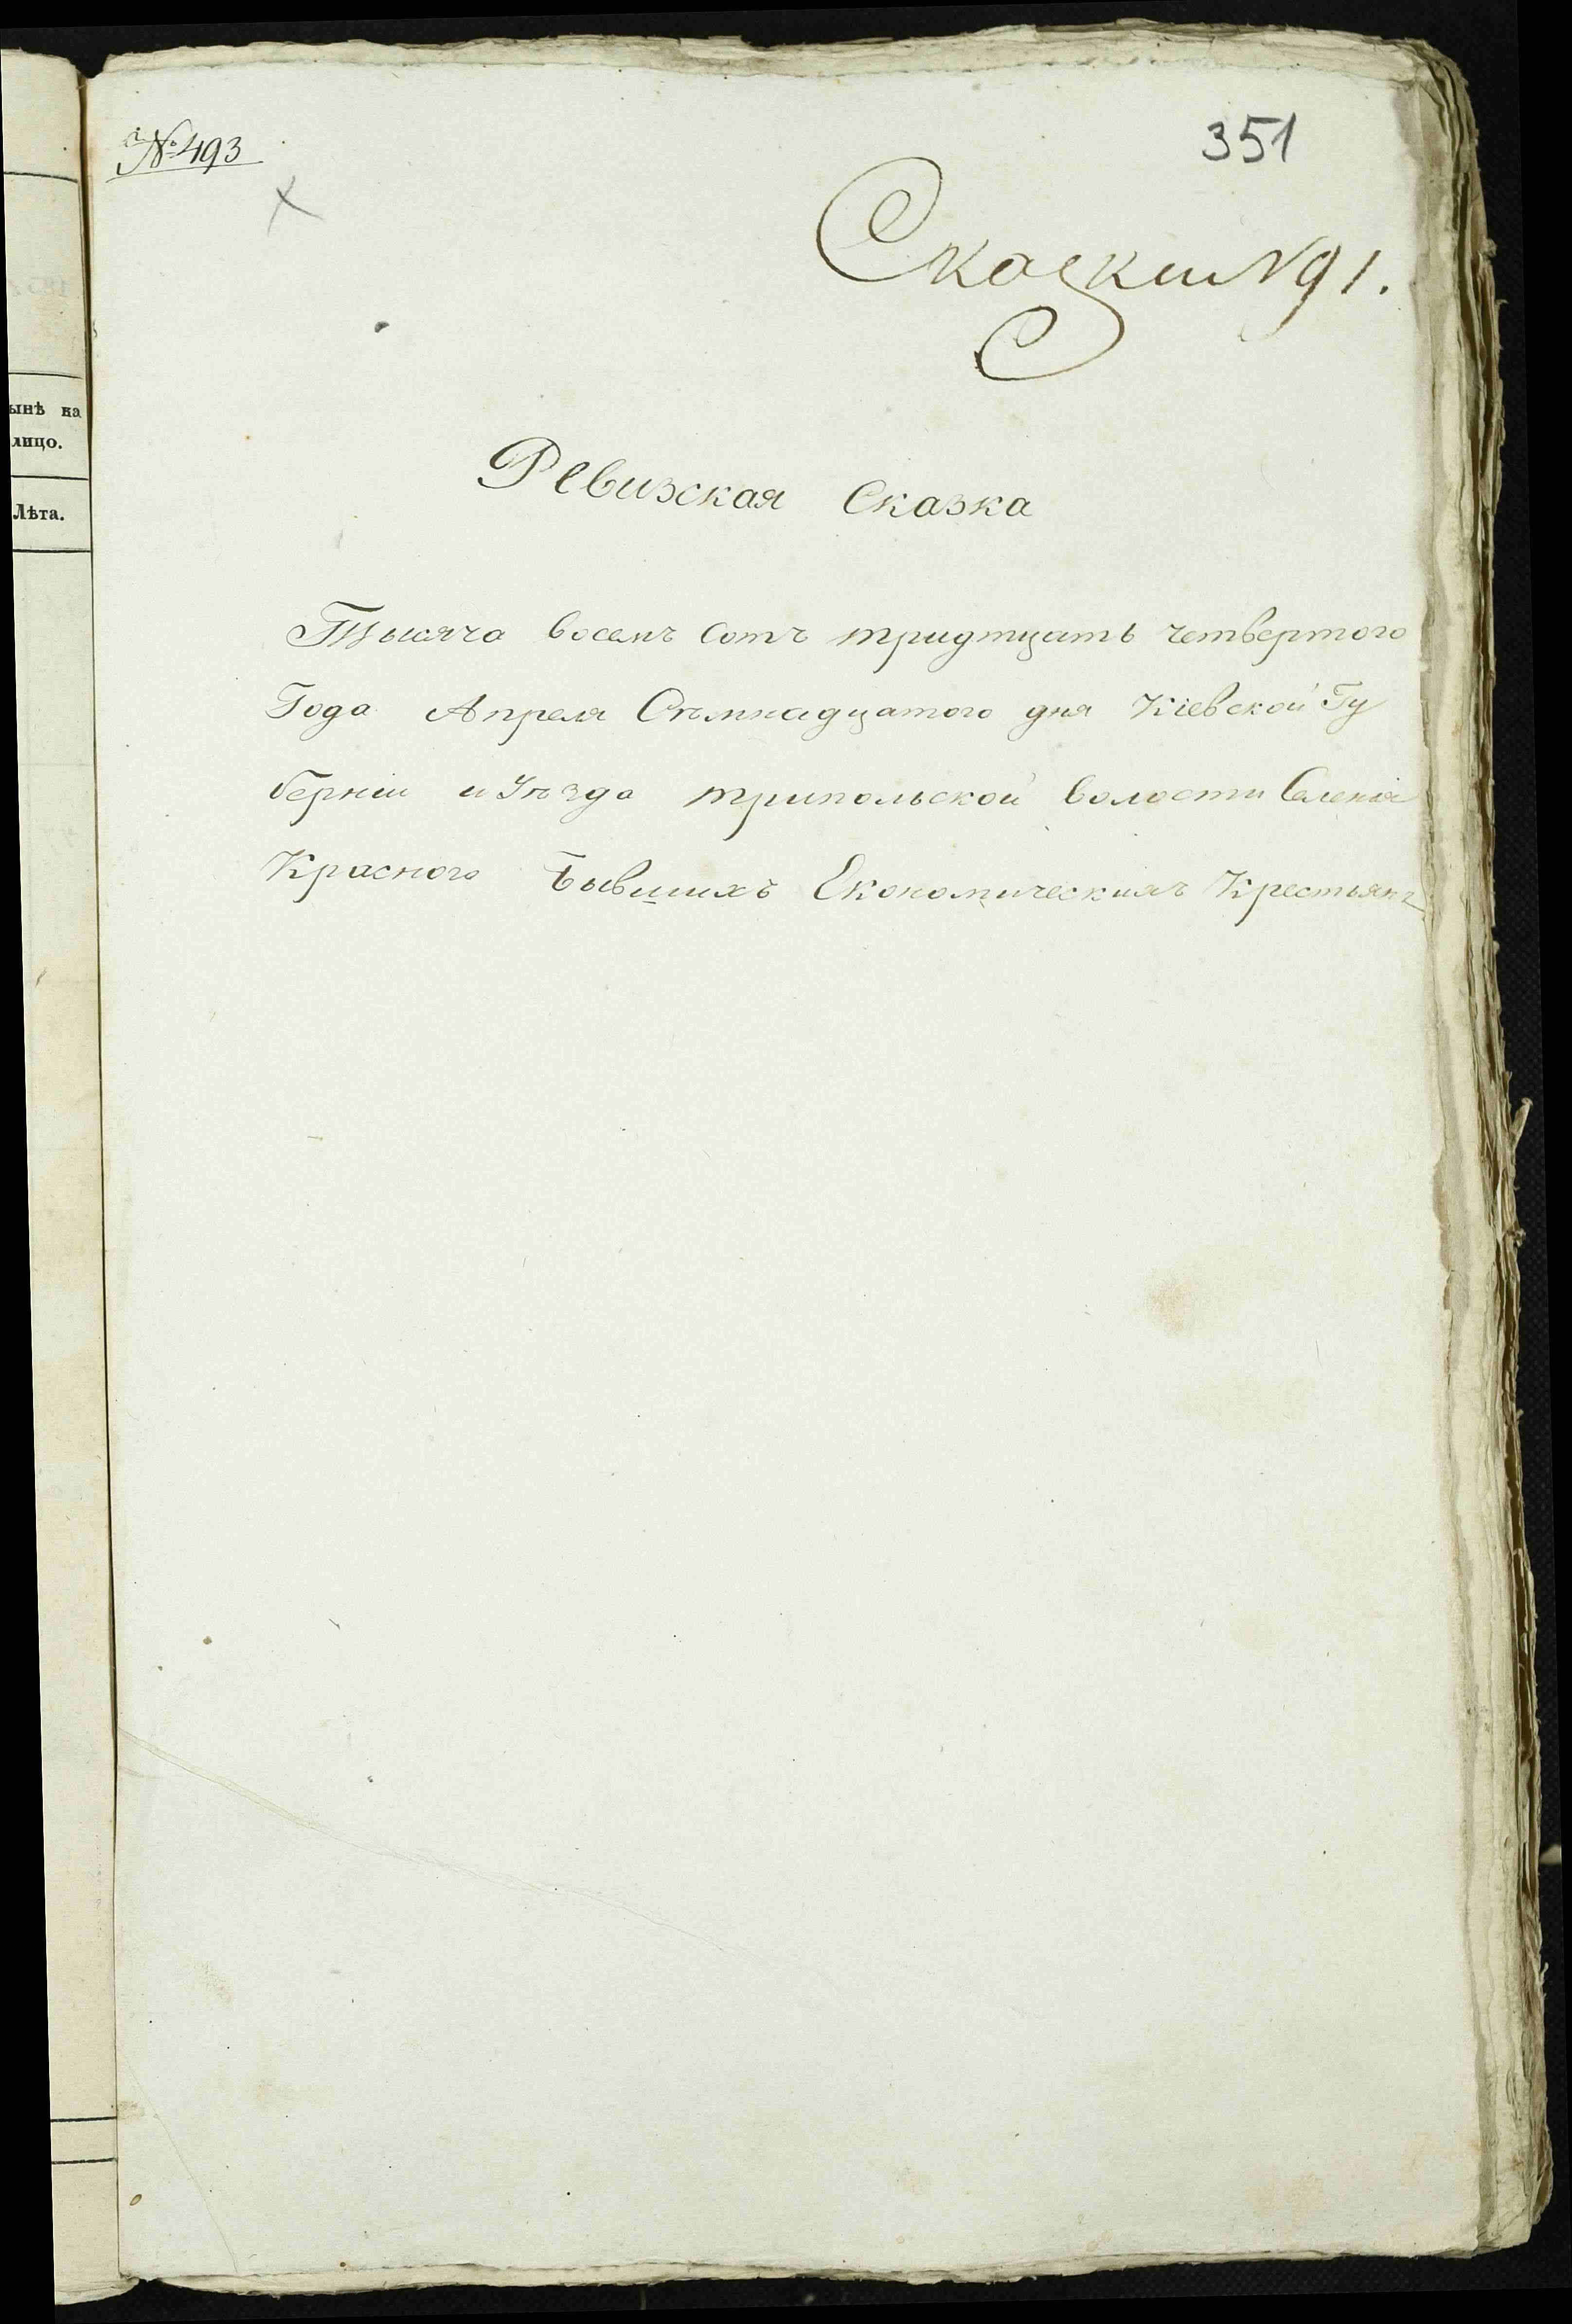 № 493
351
Скаски №91.
Ревизская Сказка
Тысяча восемъ Сотъ тридтцать четвертого
Года Апреля Съмнадцатого дня Кіевской Гу
берніи и Уѣзда трипольской волости Селенія
Красного Бывшихъ Економическихъ Крестьянъ
ынѣ на
лицо.
Лѣта.